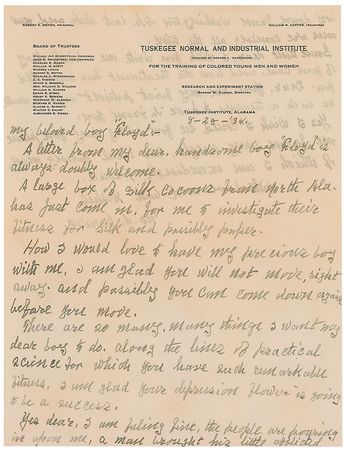 ROBERT R. MOTON, PRINCIPAL
WILLIAM H. CARTER, TREASURER
BOARD OF TRUSTEES
TUSKEGEE NORMAL AND INDUSTRIAL INSTITUTE
FOUNDED BY BOOKER T. WASHINGTON
FOR THE TRAINING OF COLORED YOUNG MEN AND WOMEN
RESEARCH AND EXPERIMENT STATION
GEORGE W. CARVER, DIRECTOR
TUSKEGEE INSTITUTE, ALABAMA
8-28-34.
my beloved boy "Floyd":-
A letter from my dear, handsome boy "Floyd" is
always doubly welcome.
A large box of silk cocoons from North Ala-
has just come in, for me to investigate their
fitness for silk and possibly paper.
How I would love to have my precious boy
with me, I am glad you will not move, right
away. and possibly you can come down again
before you move.
There are so many, many things I want my
dear boy to do. along the lines of practical
science for which you have such remarkable
fitness. I am glad your depression flower is going
to be a success.
Yes dear, I am feling fine, the people are pouring
in upon me, a man brought his little afflicted